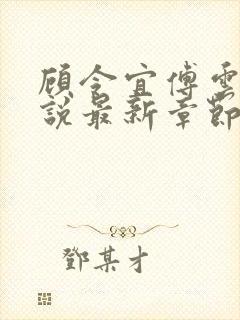 顾令宜傅雲
說最新章節
鄧某才